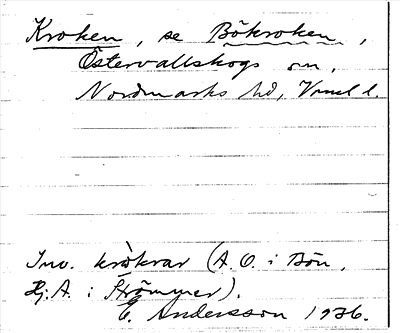 Kroken, se Bökroken,
Östervallskogs sn,
Nordmarks hd, Vrml d.
Inv. kròkrar (A. O. i Bön,
Hj. A. i Strömmer).
E. Andersson 1936.